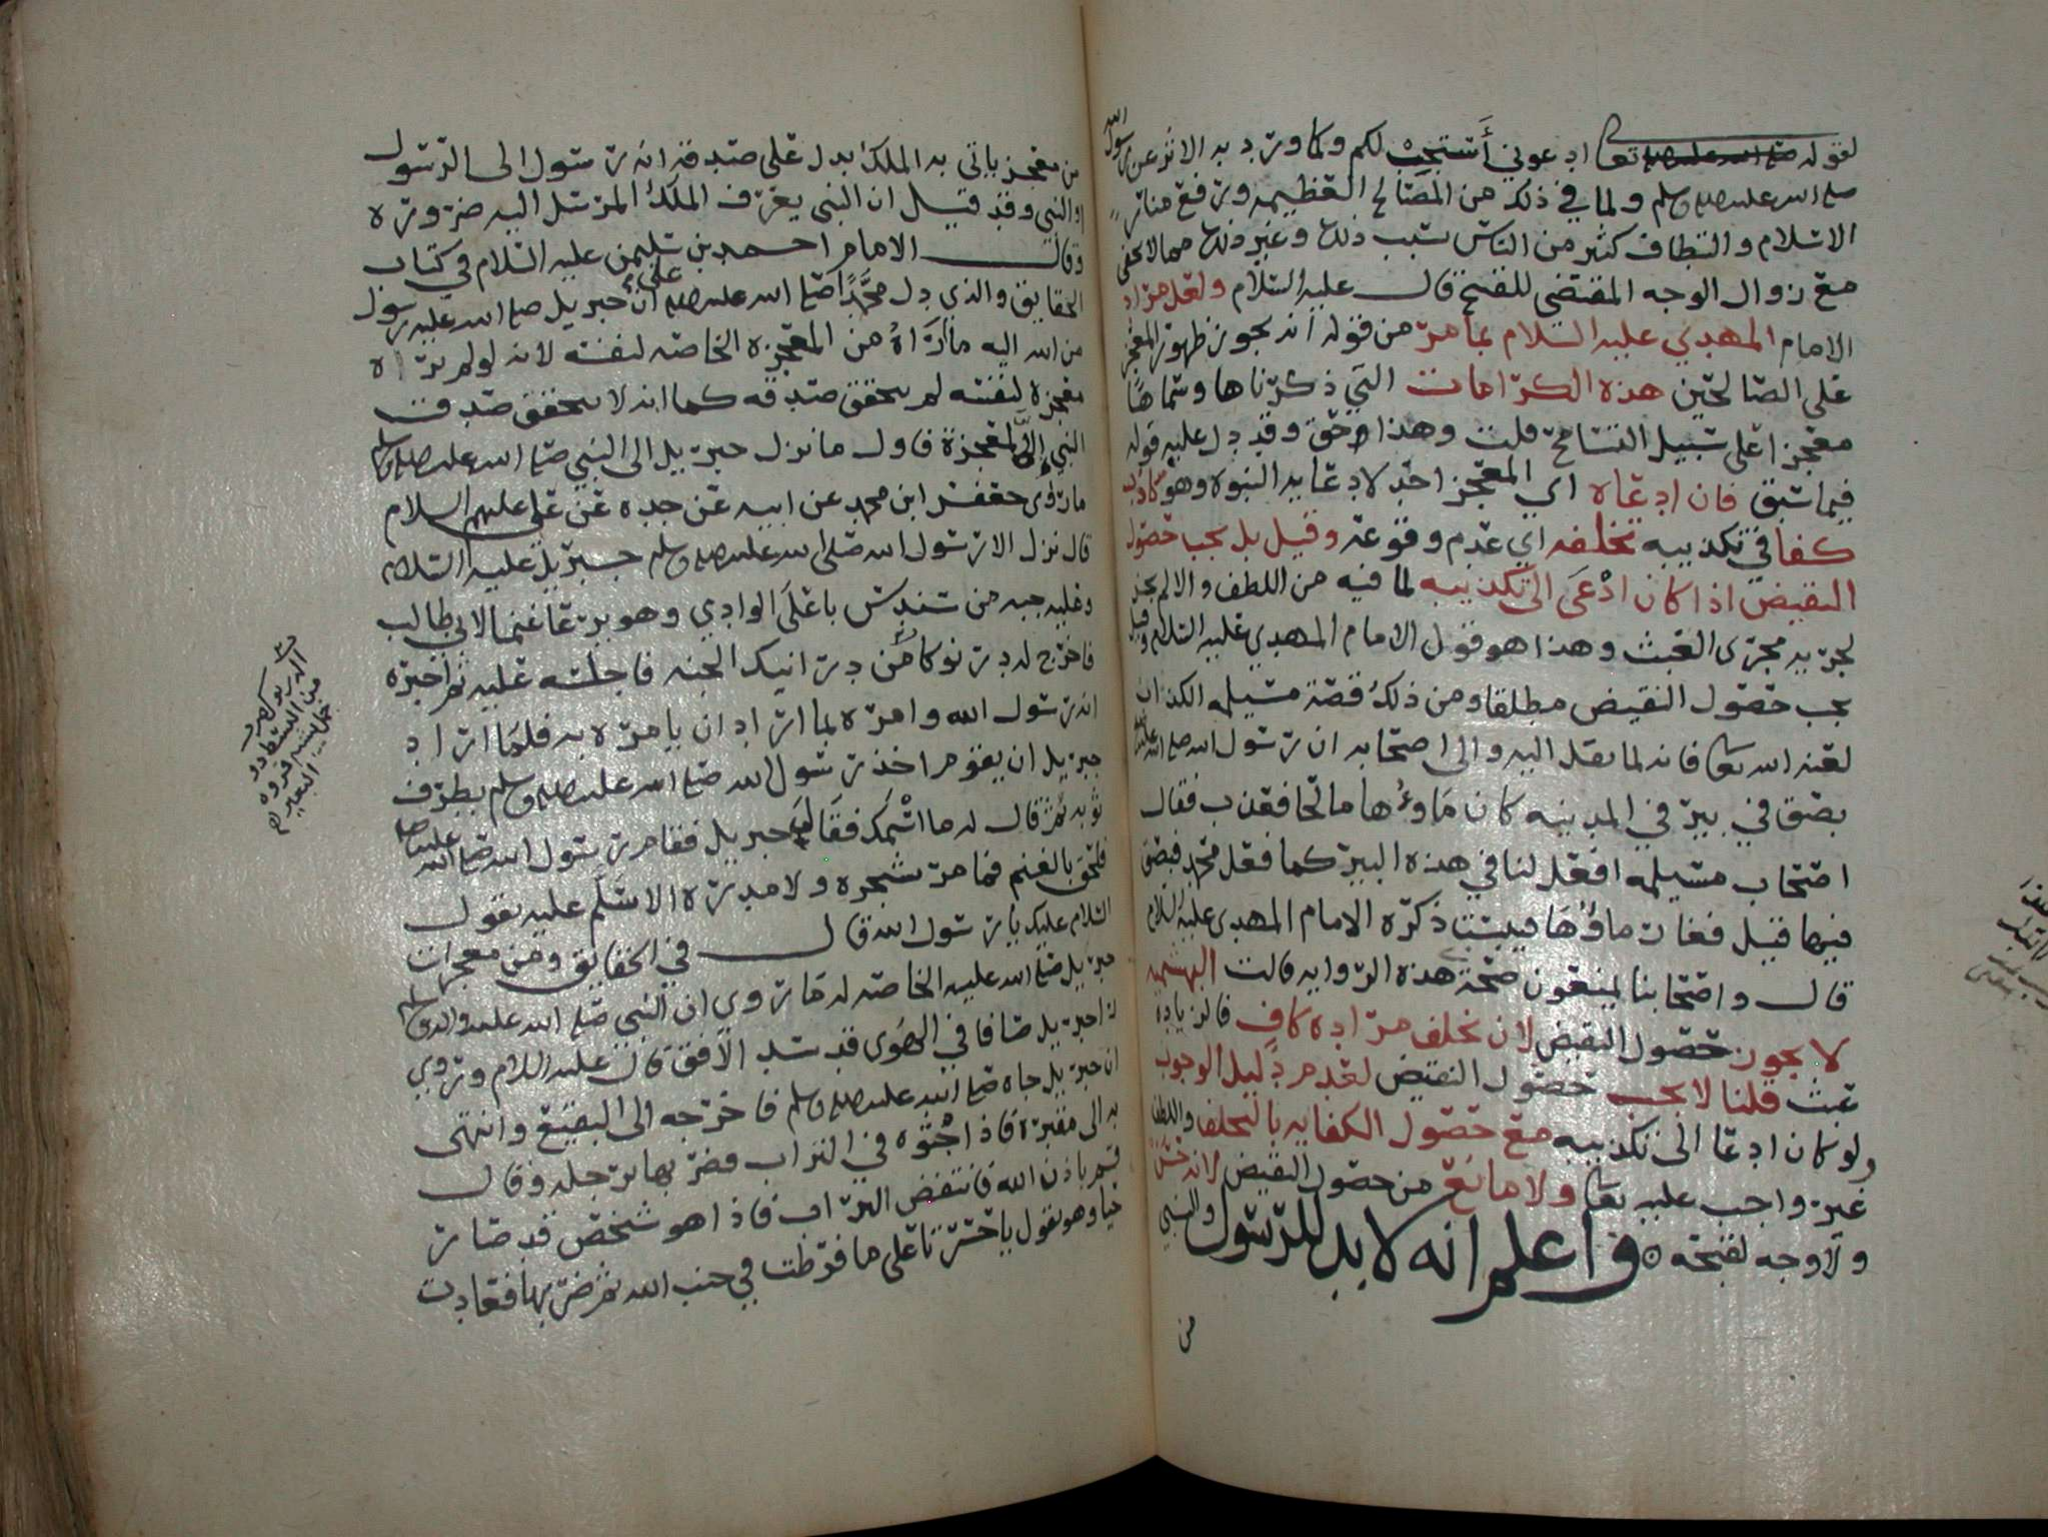 لقوله تعالى ادعوني أستجب لكم ولما ورد به الاثر عن رسول الله
صلى الله عليه وسلم ولما في ذلك من المصالح العظيمه ورفع منار
الاسلام والتطاف كثير من الناس بسبب ذلك وغير ذلك مما لا يخفى
مع زوال الوجه المقتضي للقبح قال عليه السلام ولعل مراد
الامام المهدي عليه السلام بما مر من قوله انه يجوز ظهور المعجز
على الصالحين هذه الكرامات التي ذكرناها وسماها
معجزا على سبيل التسامح قلت وهذا حق وقد دل عليه قوله
فيما سبق فان ادعاه اي المعجز احد لادعايه النبوه وهو كاذب
كفا في تكذيبه تخلفه اي عدم وقوعه وقيل بل يجب حصول
النقيض اذا كان ادعى الى تكذيبه لما فيه من اللطف والا لم يجز
لجريه مجرى العبث وهذا هو قول الامام المهدي عليه السلام وقيل
يجب حصول النقيض مطلقا ومن ذلك قصة مسيلمه الكذاب
لعنه الله تعالى فانه لما نقل اليه والى اصحابه ان رسول الله صلى الله عليه
بصق في بير في المدينه كان ماوءها مالحا فعذب فقال
اصحاب مسيلمه افعل لنا في هذه البير كما فعل محمد فبصق
فيها قيل فغار ماؤها فيبست ذكره الامام المهدي عليه السلام
قال واصحابنا يمنعون صحة هذه الروايه قالت البهشميه
لا يجوز حصول النقيض لان تخلف مراده كاف فالزياده
عبث قلنا لا يجب حصول النقيض لعدم دليل الوجوب
ولو كان ادعا الى تكذيبه مع حصول الكفايه بالتخلف واللطف
غير واجب عليه تعالى ولا مانع من حصول النقيض لانه حسن
ولا وجه لقبحه واعلم انه لا بد للرسول والنبي
من
من معجز ياتي به الملك يدل على صدقه انه رسول الى الرسول
او النبي وقد قيل ان النبي يعرف الملك المرسل اليه ضروره
وقال الامام احمد بن سليمن عليه السلام في كتاب
الحقايق والذي دل محمدا صلى الله عليه وسلم على ان جبريل صلى الله عليه رسول
من الله اليه ما أراه من المعجزه الخاصه لنفسه لانه لو لم يراه
معجزه لنفسه لم يتحقق صدقه كما انه لا يتحقق صدق
النبي إلا بالمعجزة فاول ما نزل جبريل الى النبي صلى الله عليه وسلم
ما روى جعفر ابن محمد عن ابيه عن جده عن علي عليهم السلام
قال نزل الا رسول الله صلى الله عليه وسلم جبريل عليه السلام
وعليه جبه من سندس باعلى الوادي وهو يرعا غنما لابي طالب
فاخرج له درنوكا من درانيك الجنه فاجلسه عليه ثم اخبره
انه رسول الله وامره بما اراد ان يامره به فلما اراد
جبريل ان يقوم اخذ رسول الله صلى الله عليه وسلم بطرف
ثوبه ثم قال له ما اسمك فقال له جبريل فقام رسول الله صلى الله عليه
فلحق بالغنم فما مر بشجره ولا مدره الا سلم عليه يقول
السلام عليك يا رسول الله قال في الحقايق ومن معجزات
جبريل صلى الله عليه الخاصه له ما روي ان النبي صلى الله عليه واله وسلم
راى جبريل صافا في الهوى قد سد الافق قال عليه السلام وروي
ان جبريل جاه صلى الله عليه وسلم فاخرجه الى البقيع وانتهى
به الى مقبرة فاذا جثوه في التراب فضربها برجله وقال
قم باذن الله فانتفض التراب فاذا هو شخص قد صار
حيا وهو يقول يا حسرتا على ما فرطت في جنب الله ثم ضربها فعادت